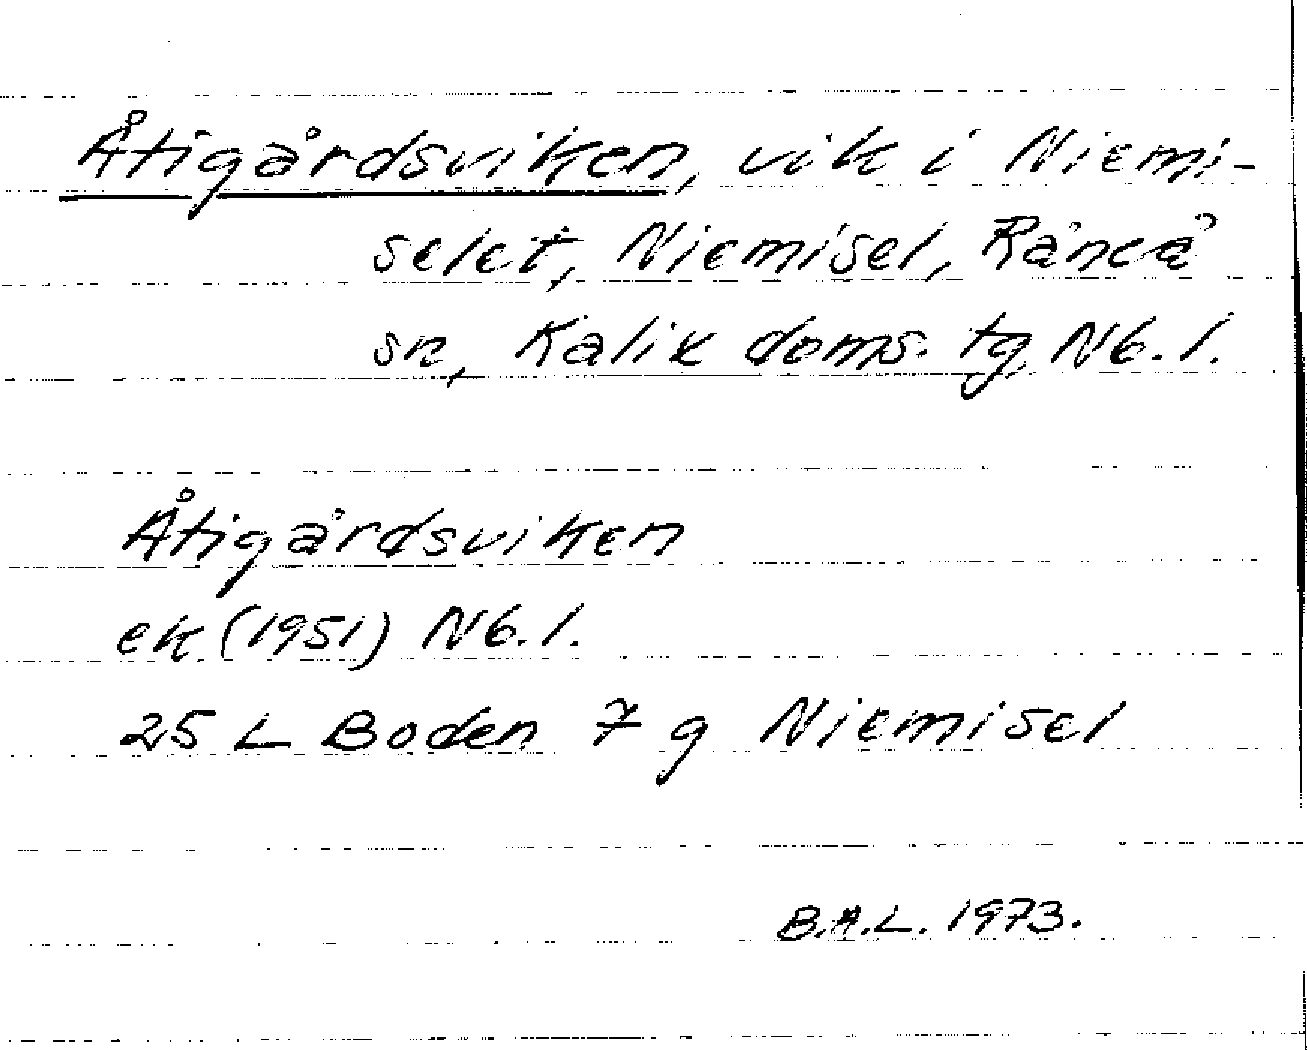 Åtigårdsviken, vik i Niemi-
selet, Niemisel, Råneå
sn, Kalix doms. tg, Nb. l.
Åtigårdsviken
ek (1951) Nb. l.
25 L Boden 7 g Niemisel
B.A.L. 1973.